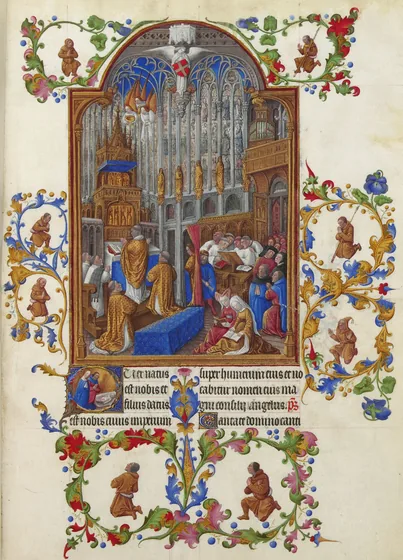 Uer natus
est nobis et
filius datus
est nobis cuius imperium
super humerum eius et vo
cabitur nomen eius ma
gni consilij angelus. ps
Cantate domino canti